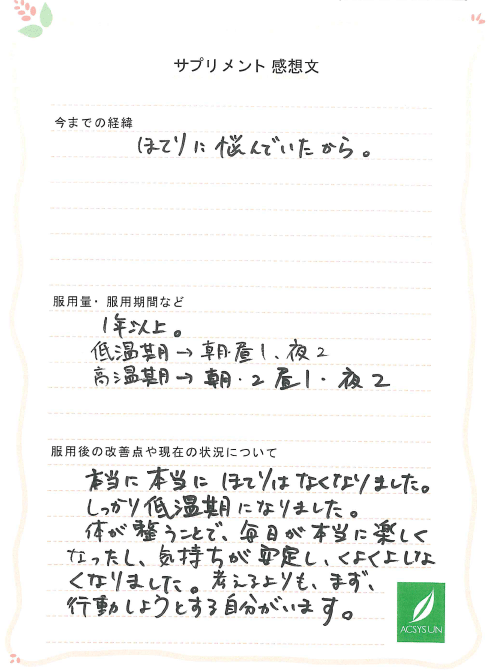 サプリメント 感想文
今までの経緯
ほてりに悩んでいたから。
服用量・服用期間など
1年以上。
低温期→朝・昼1、夜2
高温期→朝・2昼1・夜2
服用後の改善点や現在の状況について
本当に本当にほてりはなくなりました。
しっかり低温期になりました。
体が整うことで、毎日が本当に楽しく
なったし、気持ちが安定し、くよくよしな
くなりました。考えるよりも、まず、
行動しようとする自分がいます。
ACSYSUN